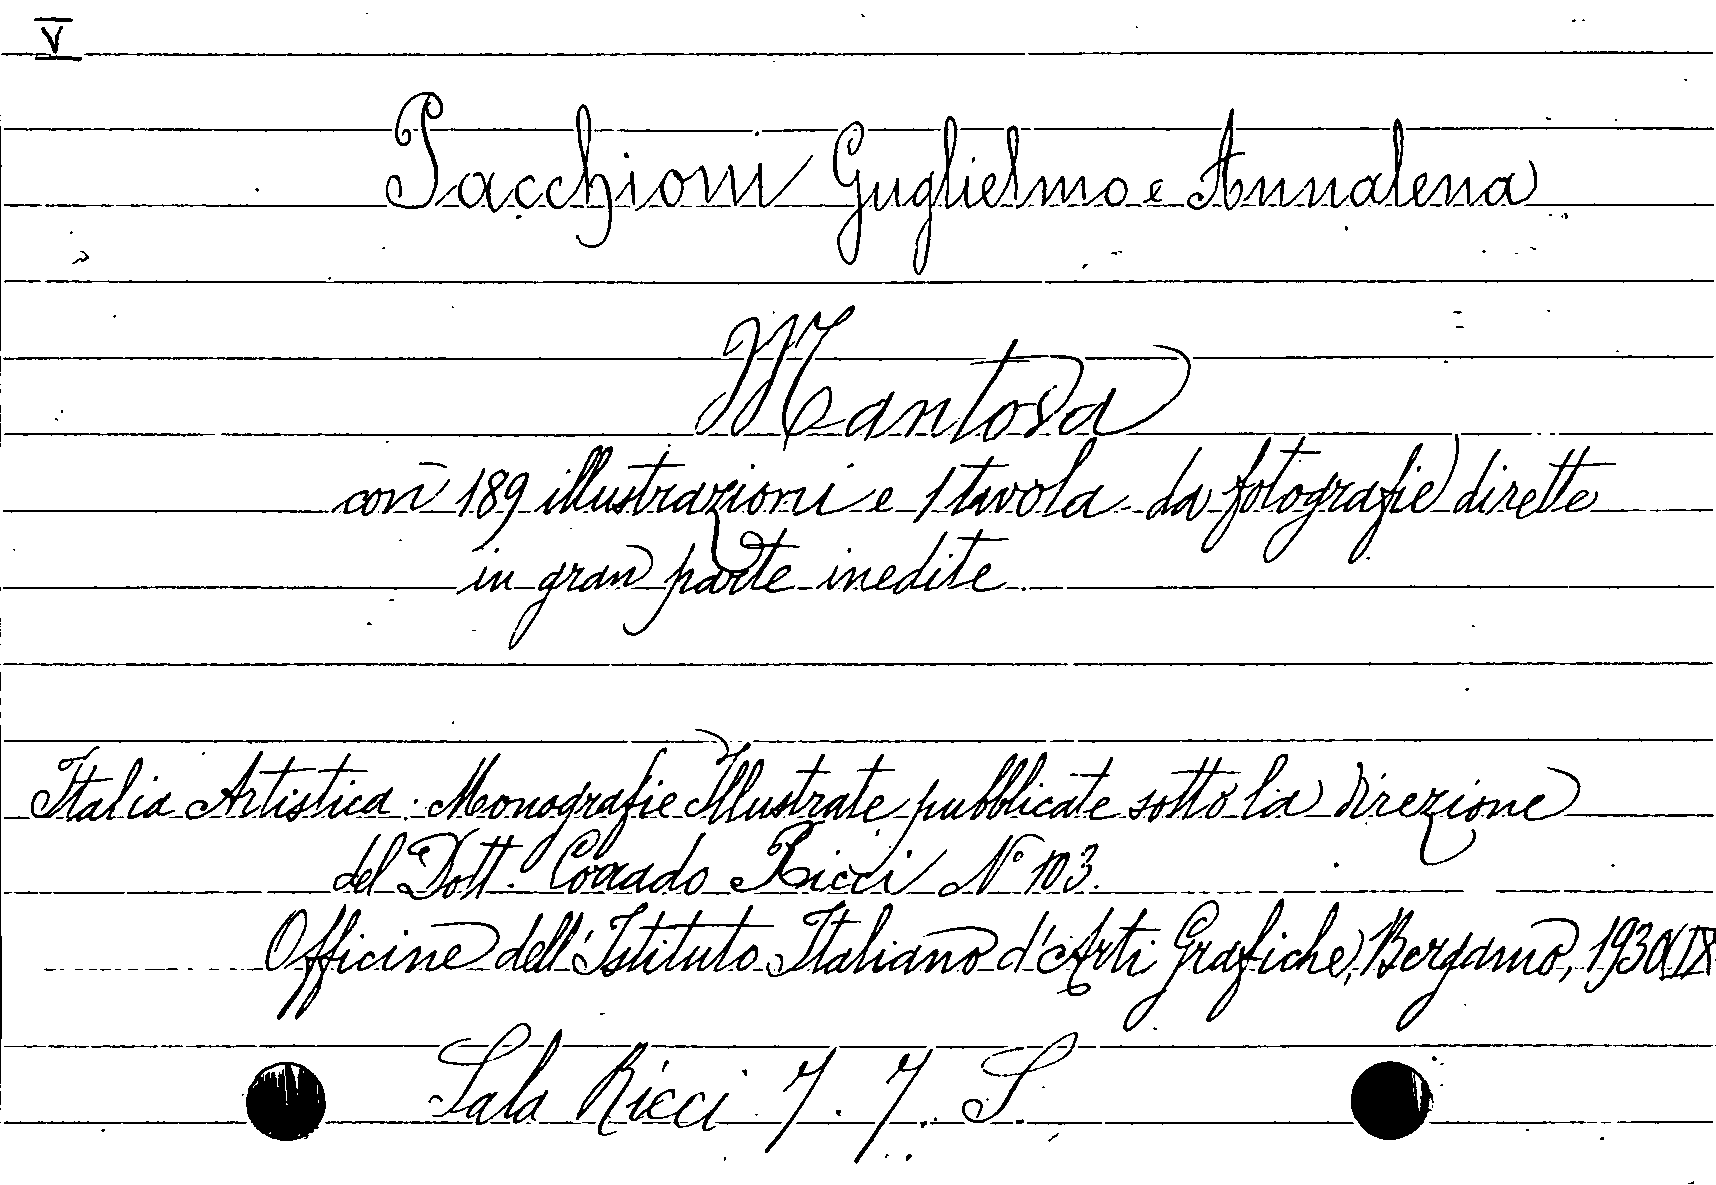 V
Pacchioni Guglielmo e Annalena
Mantova
con 189 illustrazioni e 1 tavola da fotografie dirette
in gran parte inedite
Italia Artistica. Monografie Illustrate pubblicate sotto la direzione
del Dott. Corrado Ricci N° 103.
Officine dell'Istituto Italiano d'Arti Grafiche, Bergamo, 1930 IX
Sala Ricci 7. 7. S.